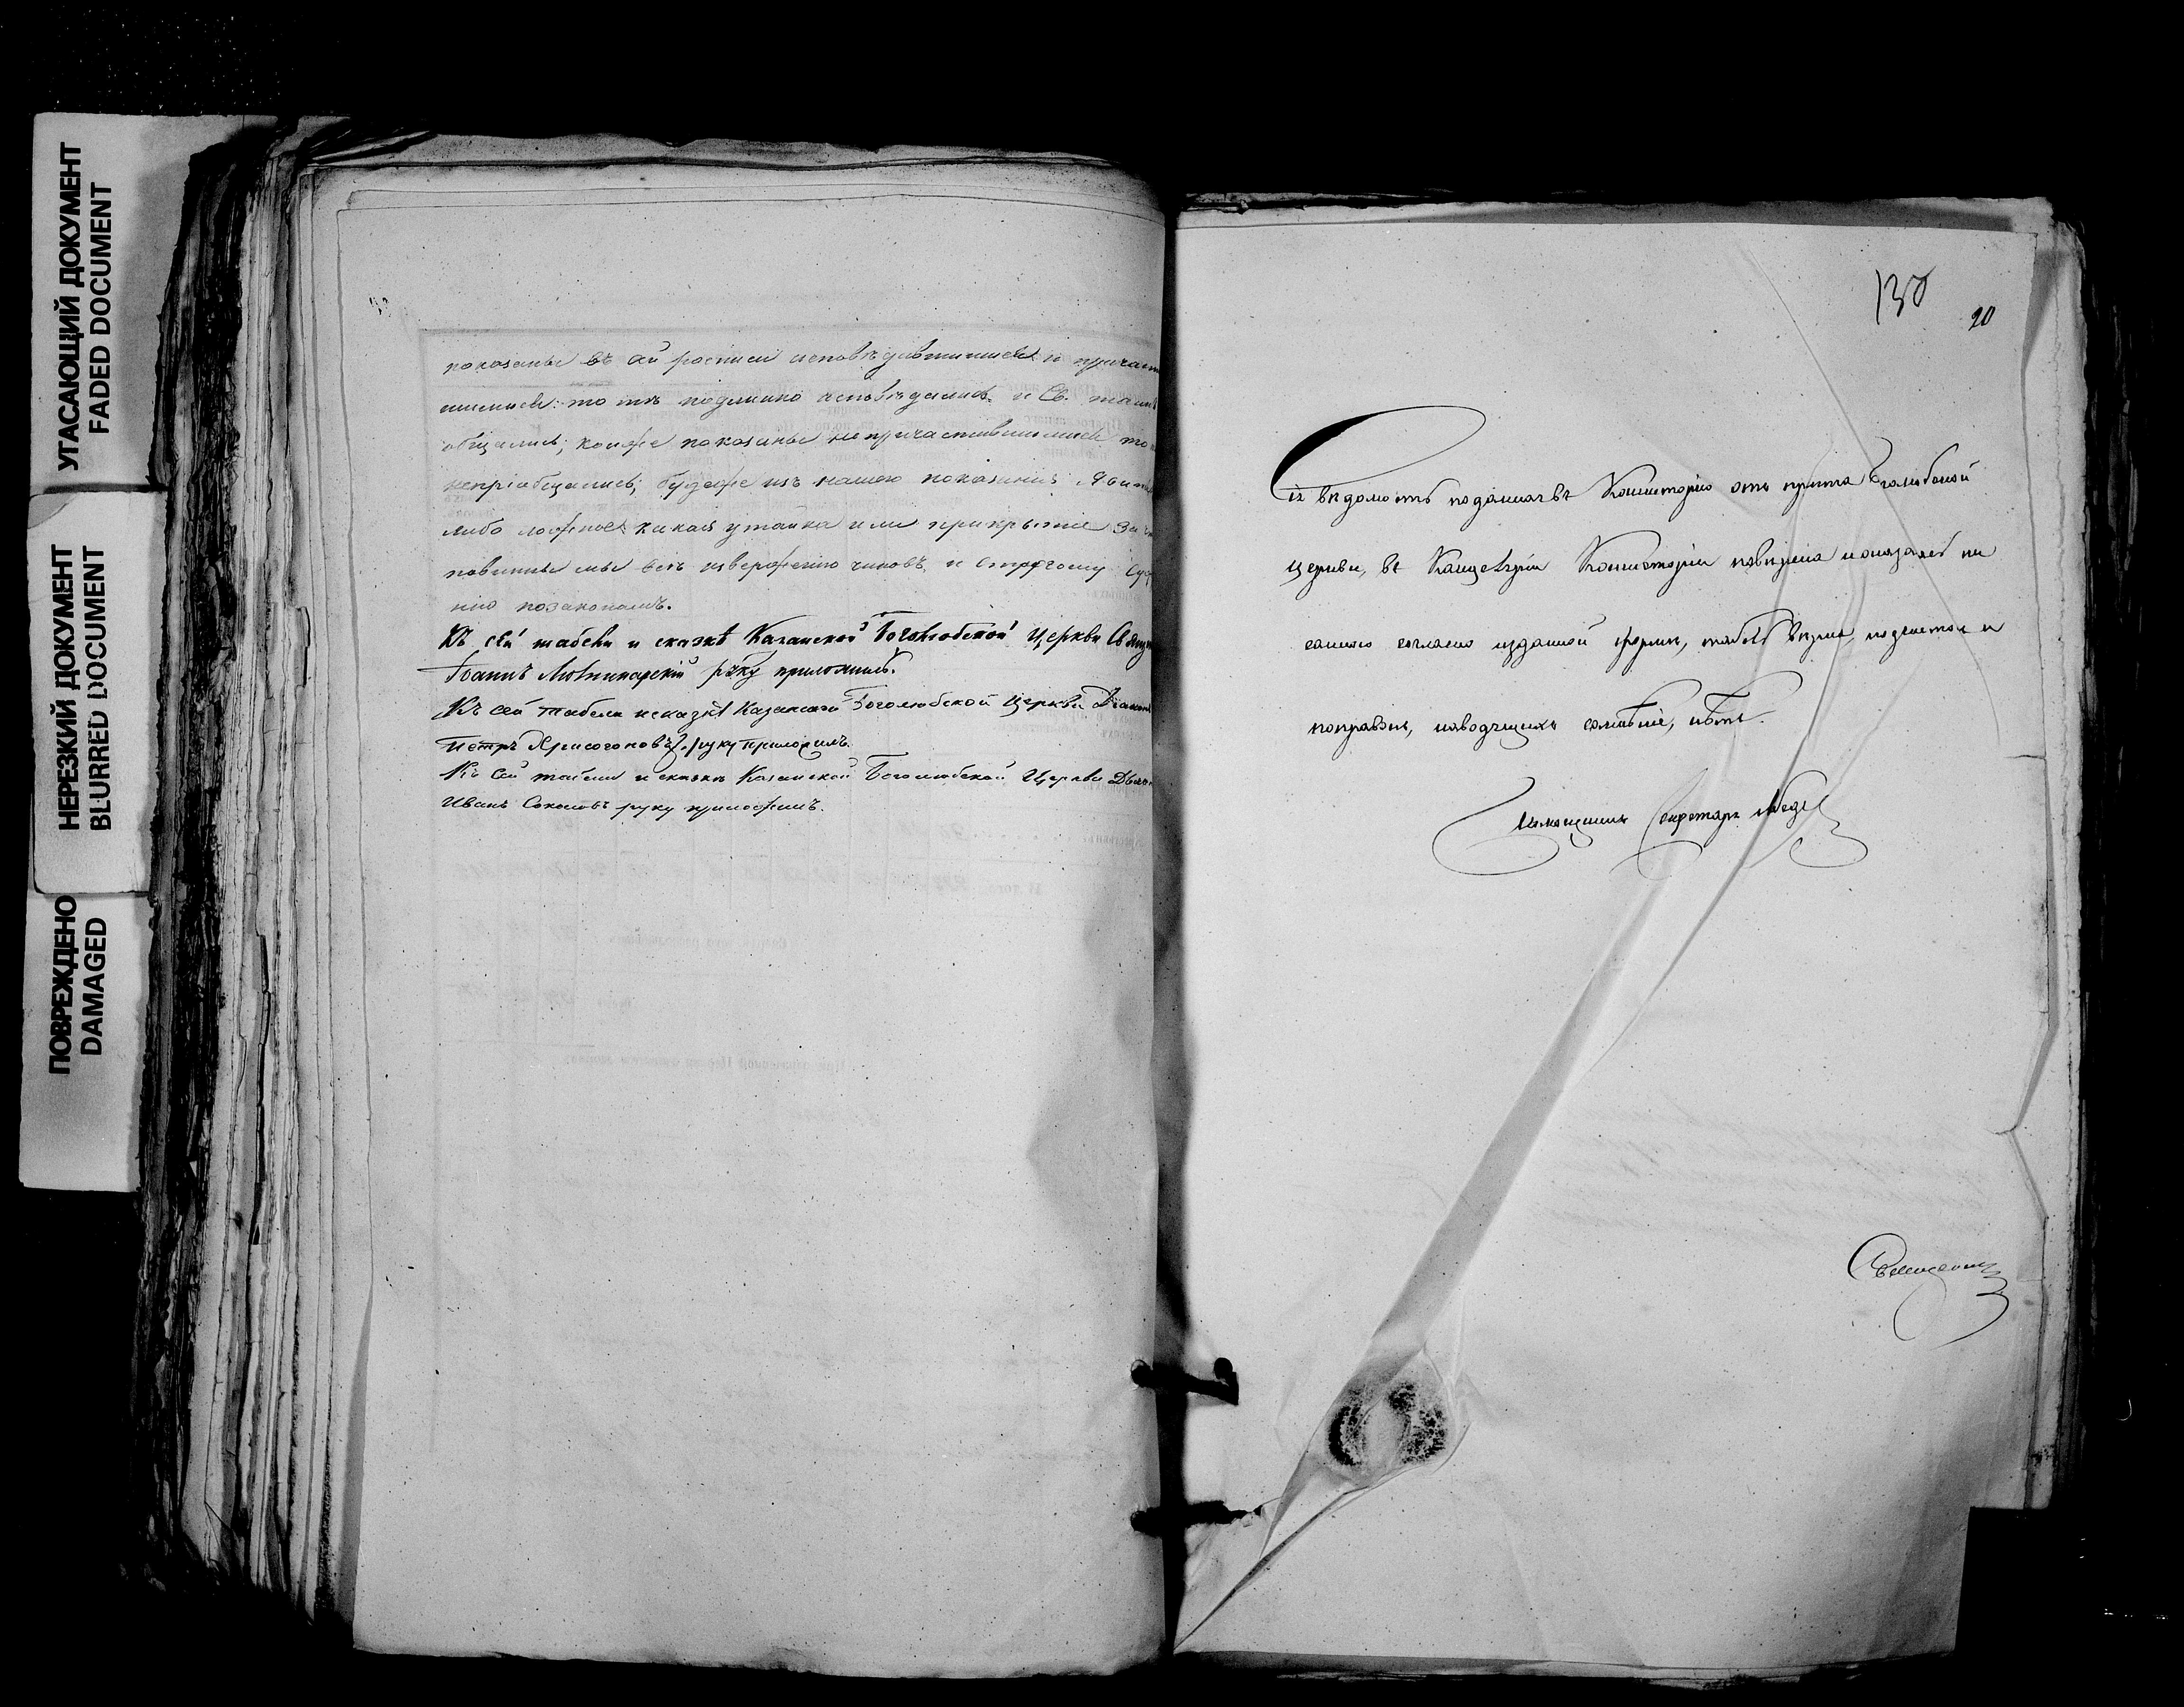 УГАСАЮЩИЙ ДОКУМЕНТ
FADED DOCUMENT
НЕРЕЗКИЙ ДОКУМЕНТ
BLURRED DOCUMENT
ПОВРЕЖДЕНО
DAMAGED
показаны въ сей росписи исповѣдавшимися и причаст
шимися: то тѣ подлинно исповѣдались и Св. таинъ
общались; коиже показаны непричастившимися то
непріобщались; будеже изъ нашего показанія явит
либо ложное какая утайка или прикрытіе за
повинны мы всѣ изверженію чиновъ, и строгому суж
нію позаконамъ.
Къ сей табели и сказкѣ Казанской Боголюбской Церкви Свящ
Іоаннъ руку приложилъ.
Къ сей табели исказкѣ Казанской Боголюбской Церкви Діакон
Петръ Хрисогоновъ руку приложилъ.
Къ сей табели и сказкѣ Казанской Боголюбской Церкви Дьячок
Иванъ Соколовъ руку приложилъ.
130
20
Сія вѣдомость поданная въ Консисторію отъ причта Боголюбской
церкви, въ Канцеляріи Консисторіи повѣрена и оказалась пи
санною согласно изданной формѣ, табель вѣрна, подчистокъ и
поправокъ, наводящихъ сомнѣніе, нѣтъ.
Секретарь